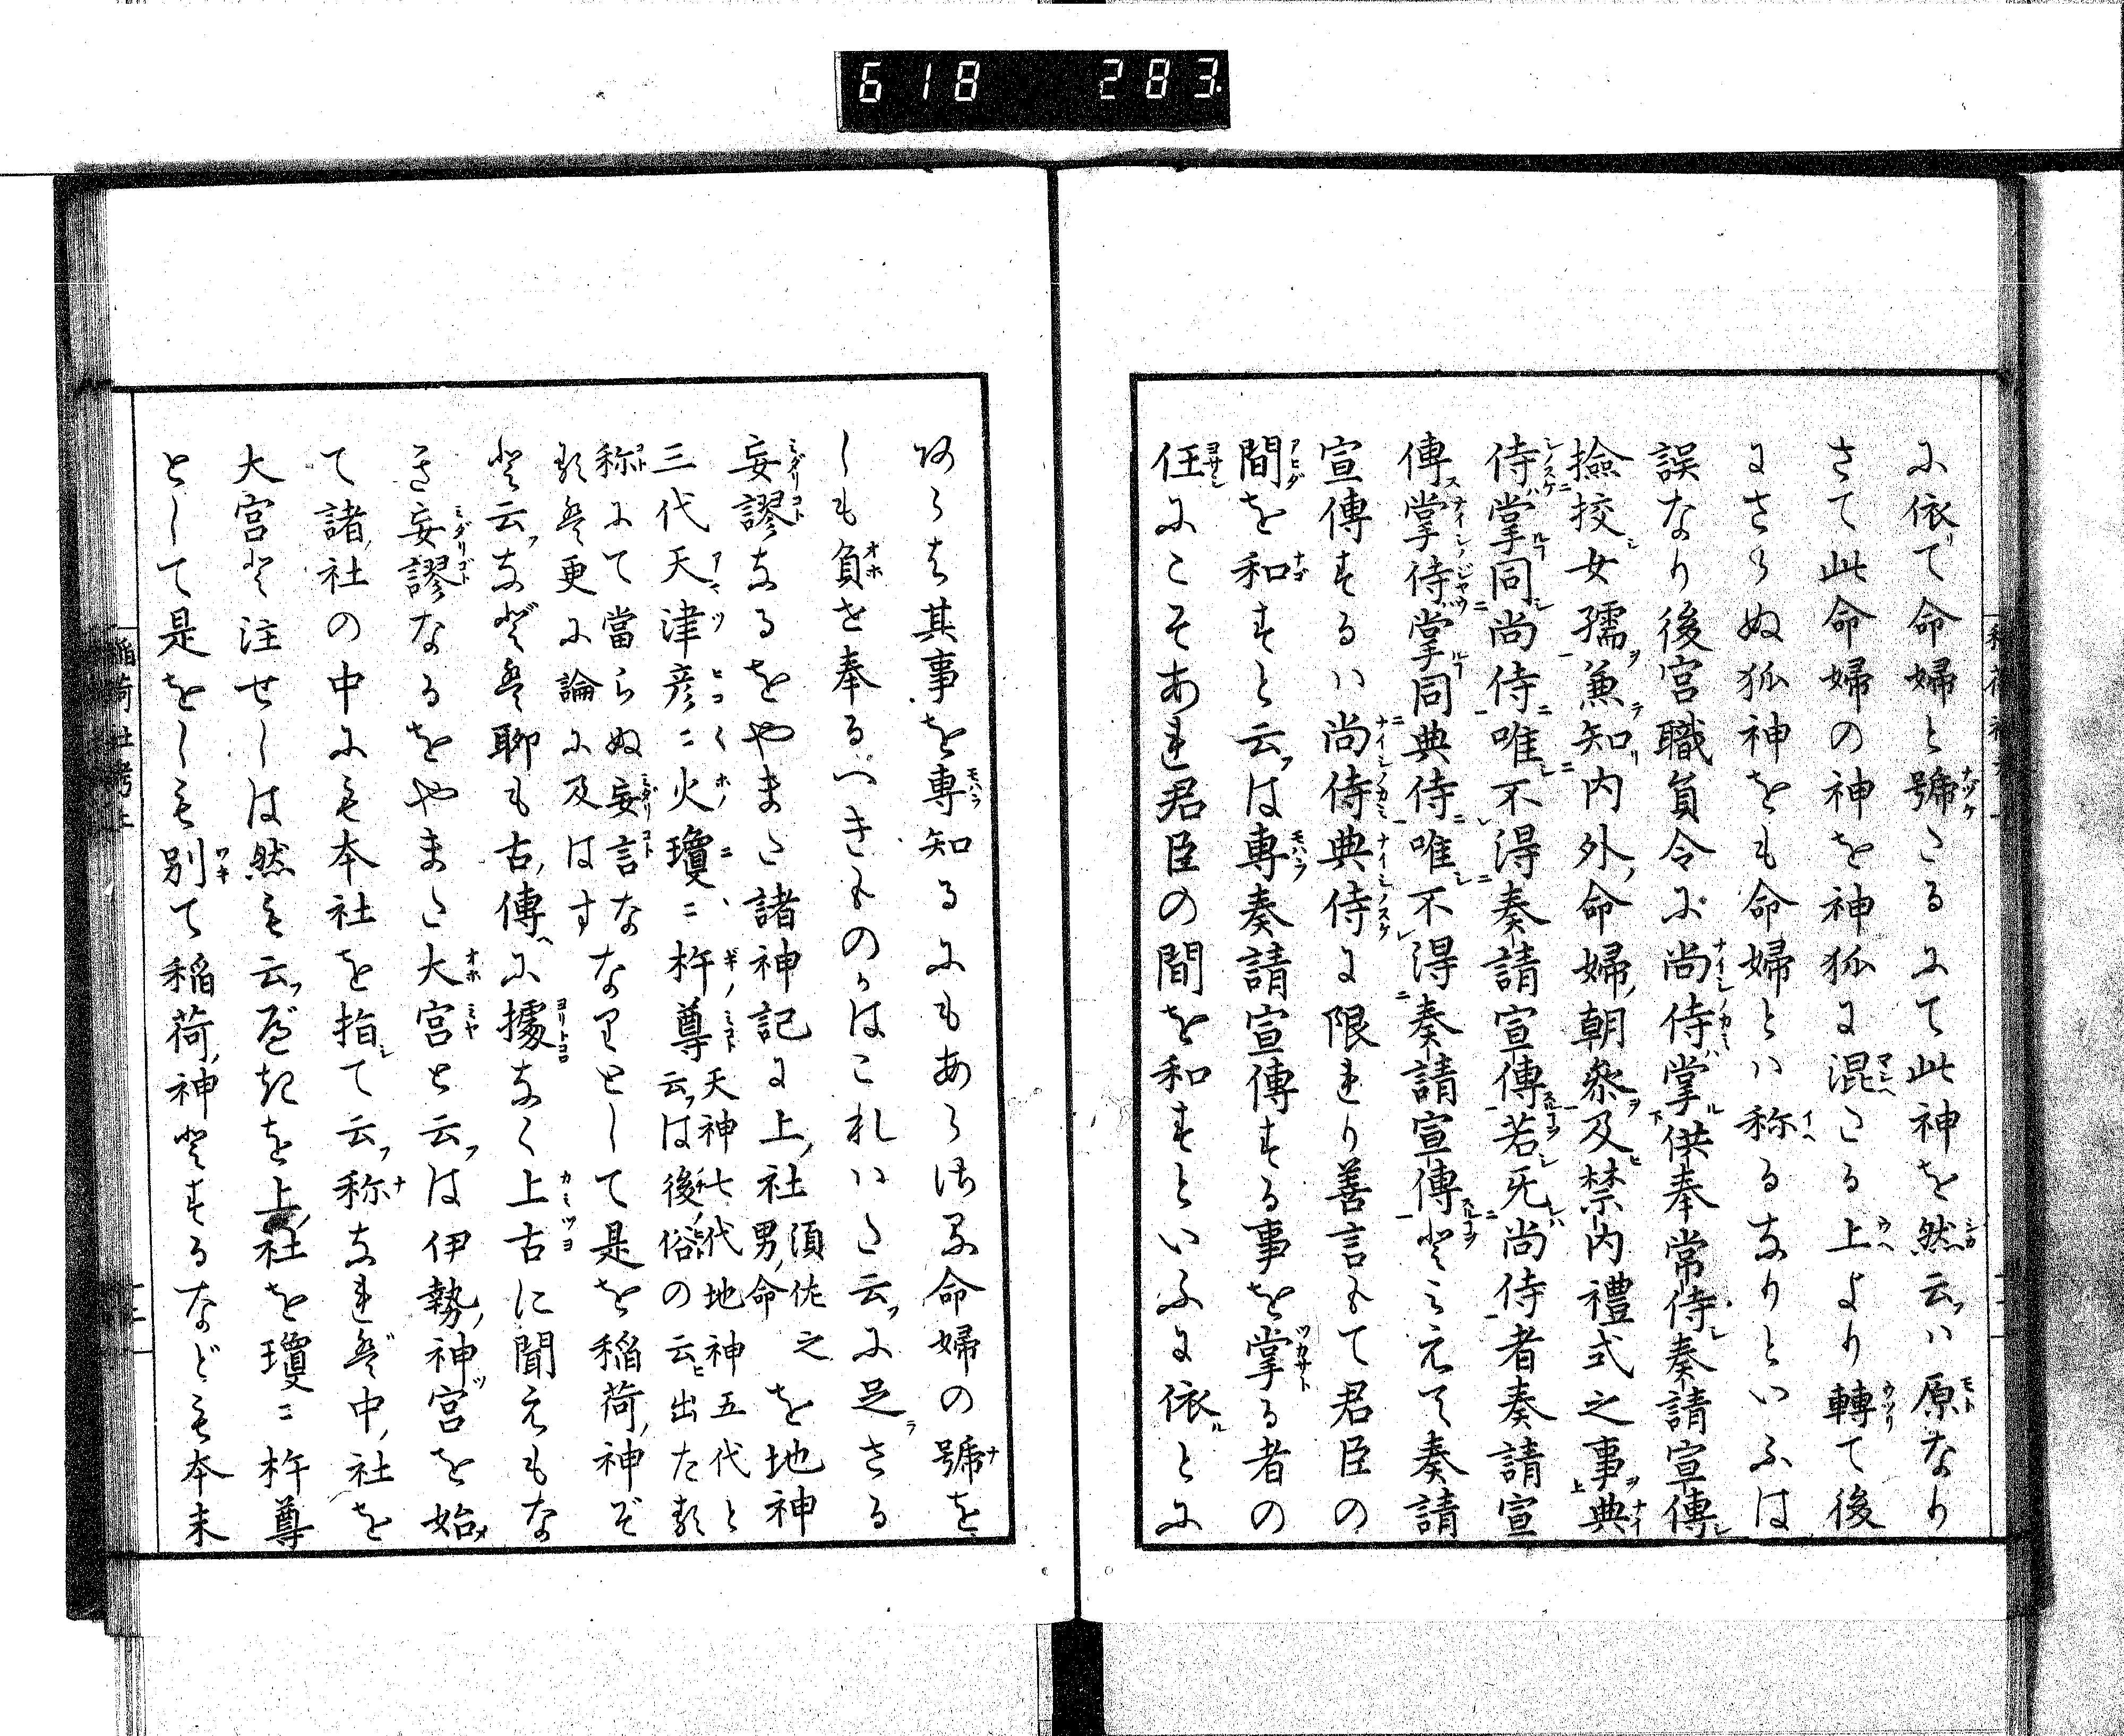 618 283
に依て命婦と號たるにて此神を然云ハ原なり
さて此命婦の神を神狐に混たる上より轉て後
にさらぬ狐神をも命婦とハ称るなりといふは
誤なり後宮職負令に尚侍掌供奉常侍奏請宣傳
撿挍女孺兼知内外命婦朝叅及禁内禮式之事典
侍掌同尚侍唯不得奏請宣傳若无尚侍者奏請宣
傳掌侍掌同典侍唯不得奏請宣傳とミえて奏請
宣傳するハ尚侍典侍に限れり善言もて君臣の
間を和すと云は專奏請宣傳する事を掌る者の
任にこそあれ君臣の間を和すといふに依とに
あらは其事を專知るにもあら命婦の號を
しも負せ奉るべきものかはこれハた云に足さる
妄謬なるをやまた諸神記に上社須佐之男命を地神
三代天津彦々火瓊々杵尊天神七代地神五代と云は後俗の云出た類
称にて當らぬ妄言な類は更に論に及はすなりとして是を稲荷神ぞ
と云なとは聊も古傳に據なく上古に聞えもな
き妄謬なるをやまた大宮と云は伊勢神宮を始
て諸社の中にも本社を指て云称なれば中社を
大宮と注せしは然も云べきを上社を瓊々杵尊
としてこ是をしも別て稲荷神とするなども本末
稲荷社考上